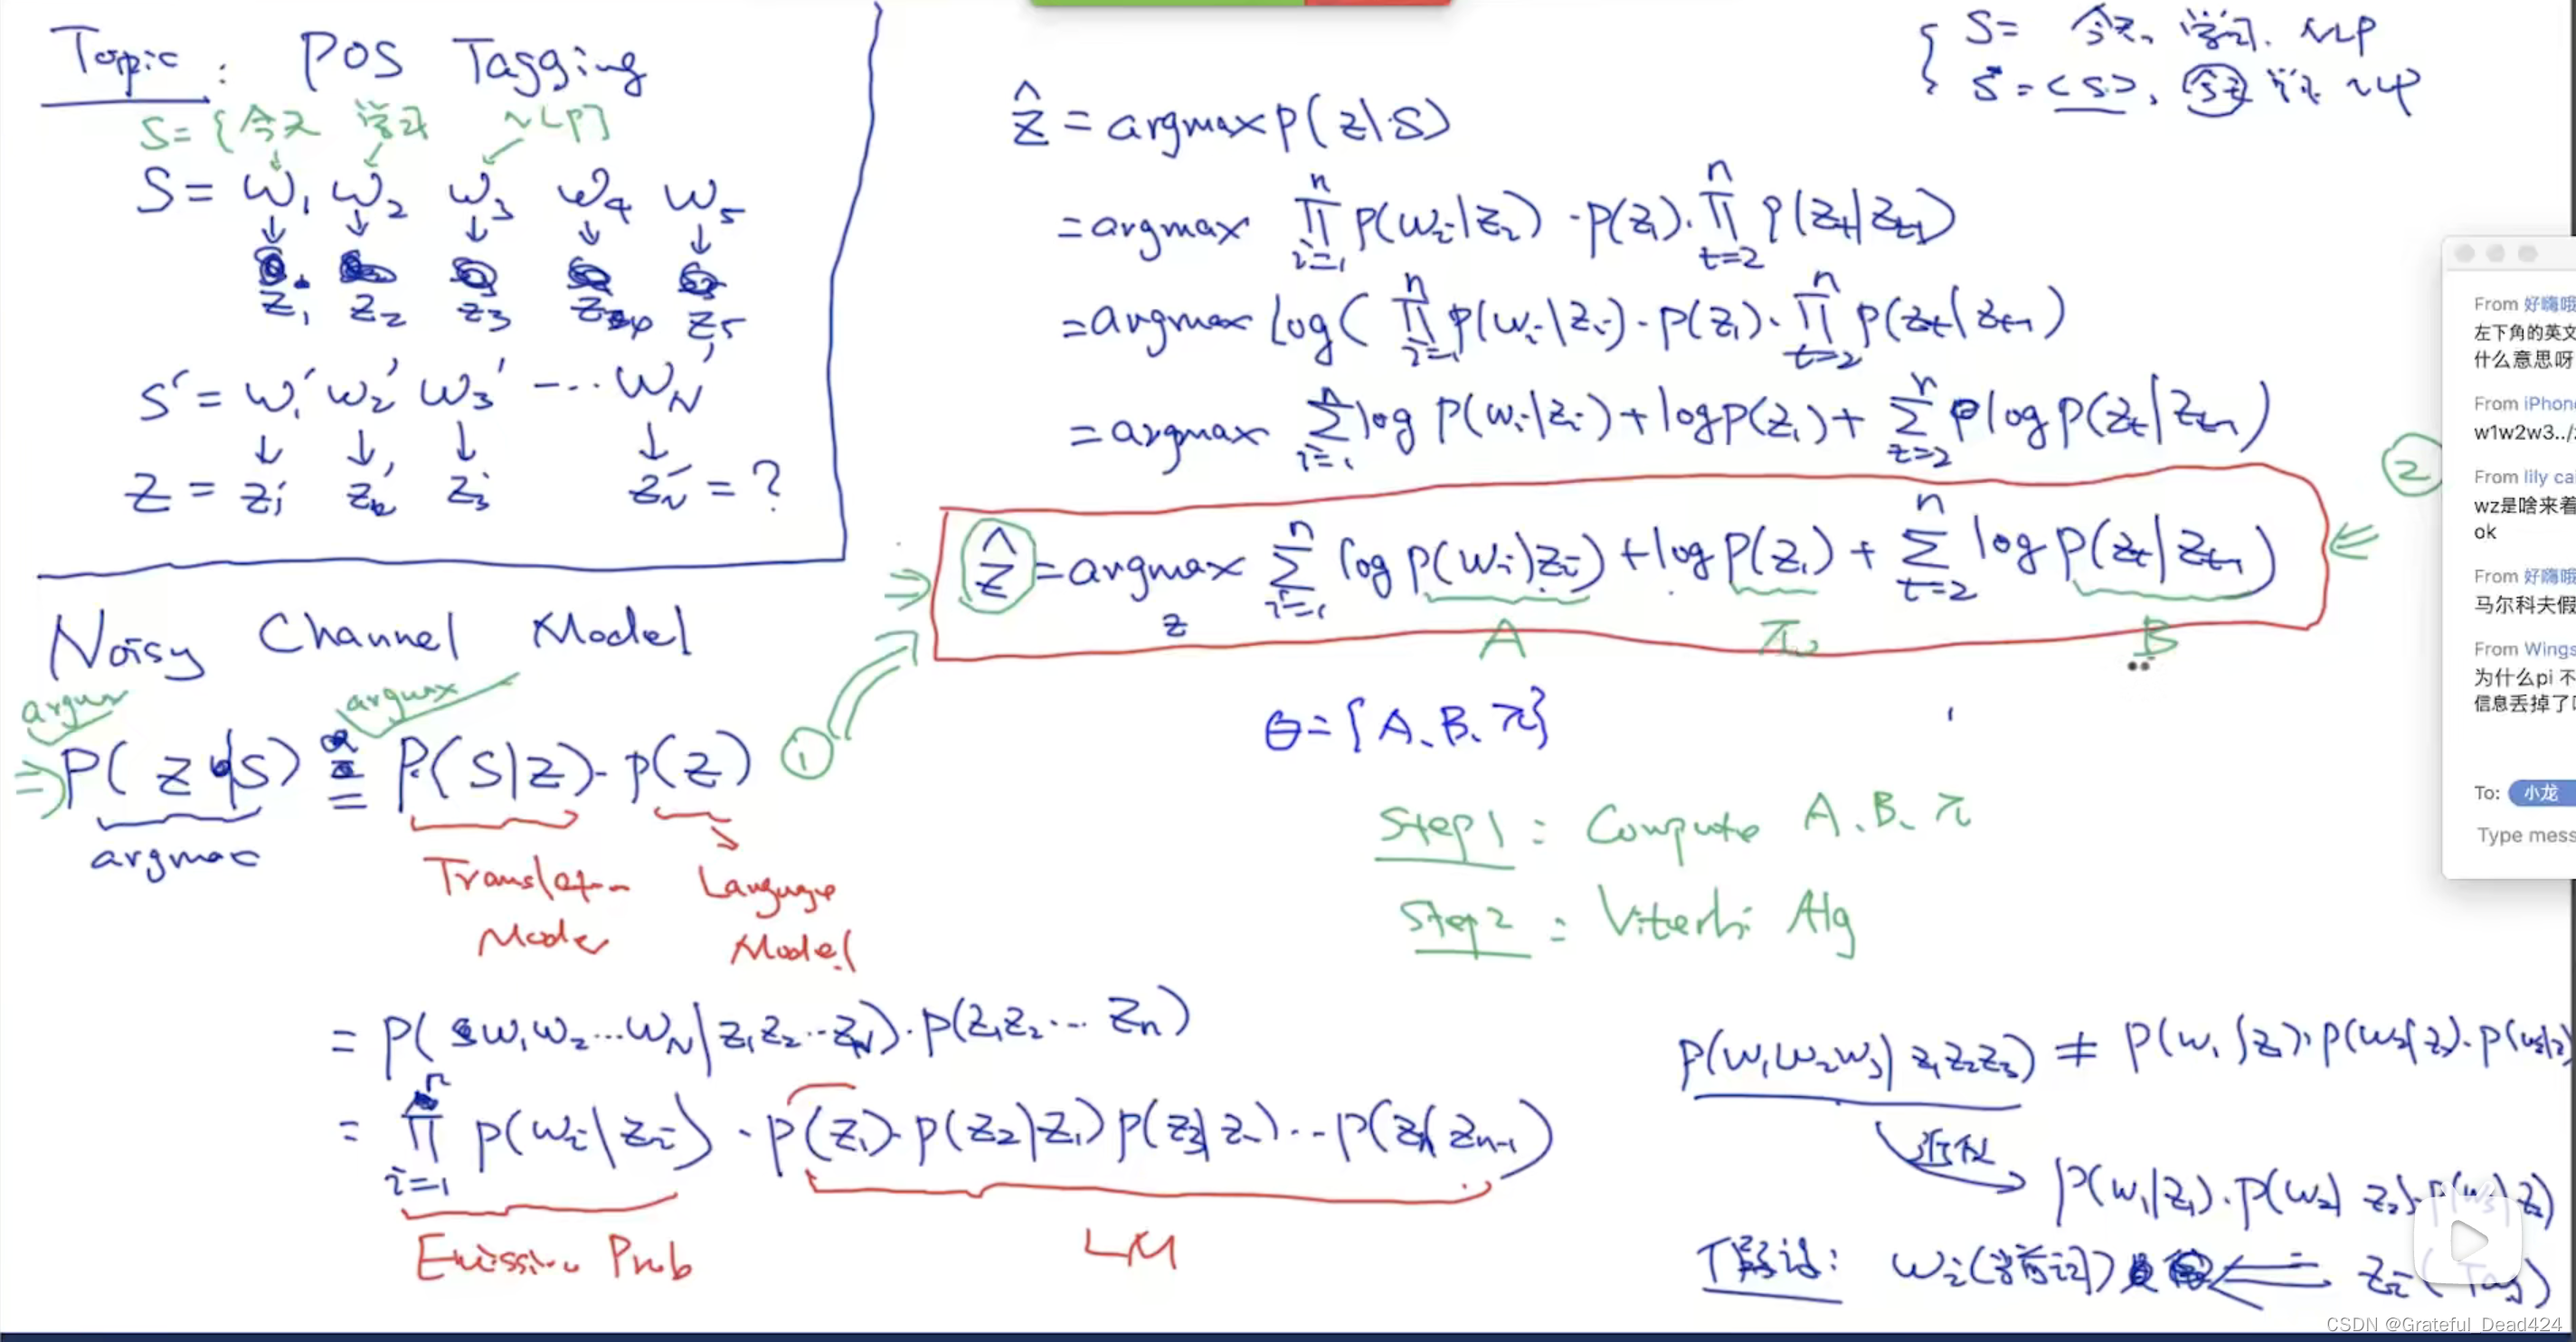 Topic: POS Tagging
S = {今天 学习 NLP}
S = w₁ w₂ w₃ w₄ w₅
z₁ z₂ z₃ z₄ z₅
S' = w₁' w₂' w₃' ... w_N'
z = z₁' z₂' z₃' z_N' = ?
Noisy Channel Model
argmax argmax
P(z|S) = P(S|z)·p(z) ①
argmax
Translation Model
Language Model
= P(w₁w₂...w_N|z₁z₂...z_N)·p(z₁z₂...z_n)
= ∏ⁿᵢ₌₁ p(wᵢ|zᵢ) · p(z₁)·p(z₂|z₁)p(z₃|z₂)...p(z_n|z_{n-1})
Emission Prob LM
S = 今天, 学习, NLP
S = <S>, 今天 学习 NLP
ẑ = argmax p(z|S)
= argmax ∏ⁿᵢ₌₁ p(wᵢ|zᵢ) · p(z₁)·∏ⁿₜ₌₂ p(zₜ|zₜ₋₁)
= argmax log( ∏ⁿᵢ₌₁ p(wᵢ|zᵢ)·p(z₁)·∏ⁿₜ₌₂ p(zₜ|zₜ₋₁)
= argmax ∑ⁿᵢ₌₁ log p(wᵢ|zᵢ) + log p(z₁) + ∑ⁿₜ₌₂ log p(zₜ|zₜ₋₁)
②
ẑ = argmax_z ∑ⁿᵢ₌₁ log p(wᵢ|zᵢ) + log p(z₁) + ∑ⁿₜ₌₂ log p(zₜ|zₜ₋₁)
A π B
θ = {A、B、π}
Step1 : Compute A、B、π
Step2 : Viterbi Alg
p(w₁w₂w₃|z₁z₂z₃) ≠ p(w₁|z₁)·p(w₂|z₂)·p(w₃|z₃)
近似
p(w₁|z₁)·p(w₂|z₂)·p(w₃|z₃)
假设: wᵢ(当前词) ⇐ zᵢ(Tag)
From 好嗨哦
左下角的英文
什么意思呀
From iPhone
w1w2w3../
From lily ca
wz是啥来着
ok
From 好嗨哦
马尔科夫假
From Wings
为什么pi 不
信息丢掉了
To: 小龙
Type mess
CSDN @Grateful_Dead424